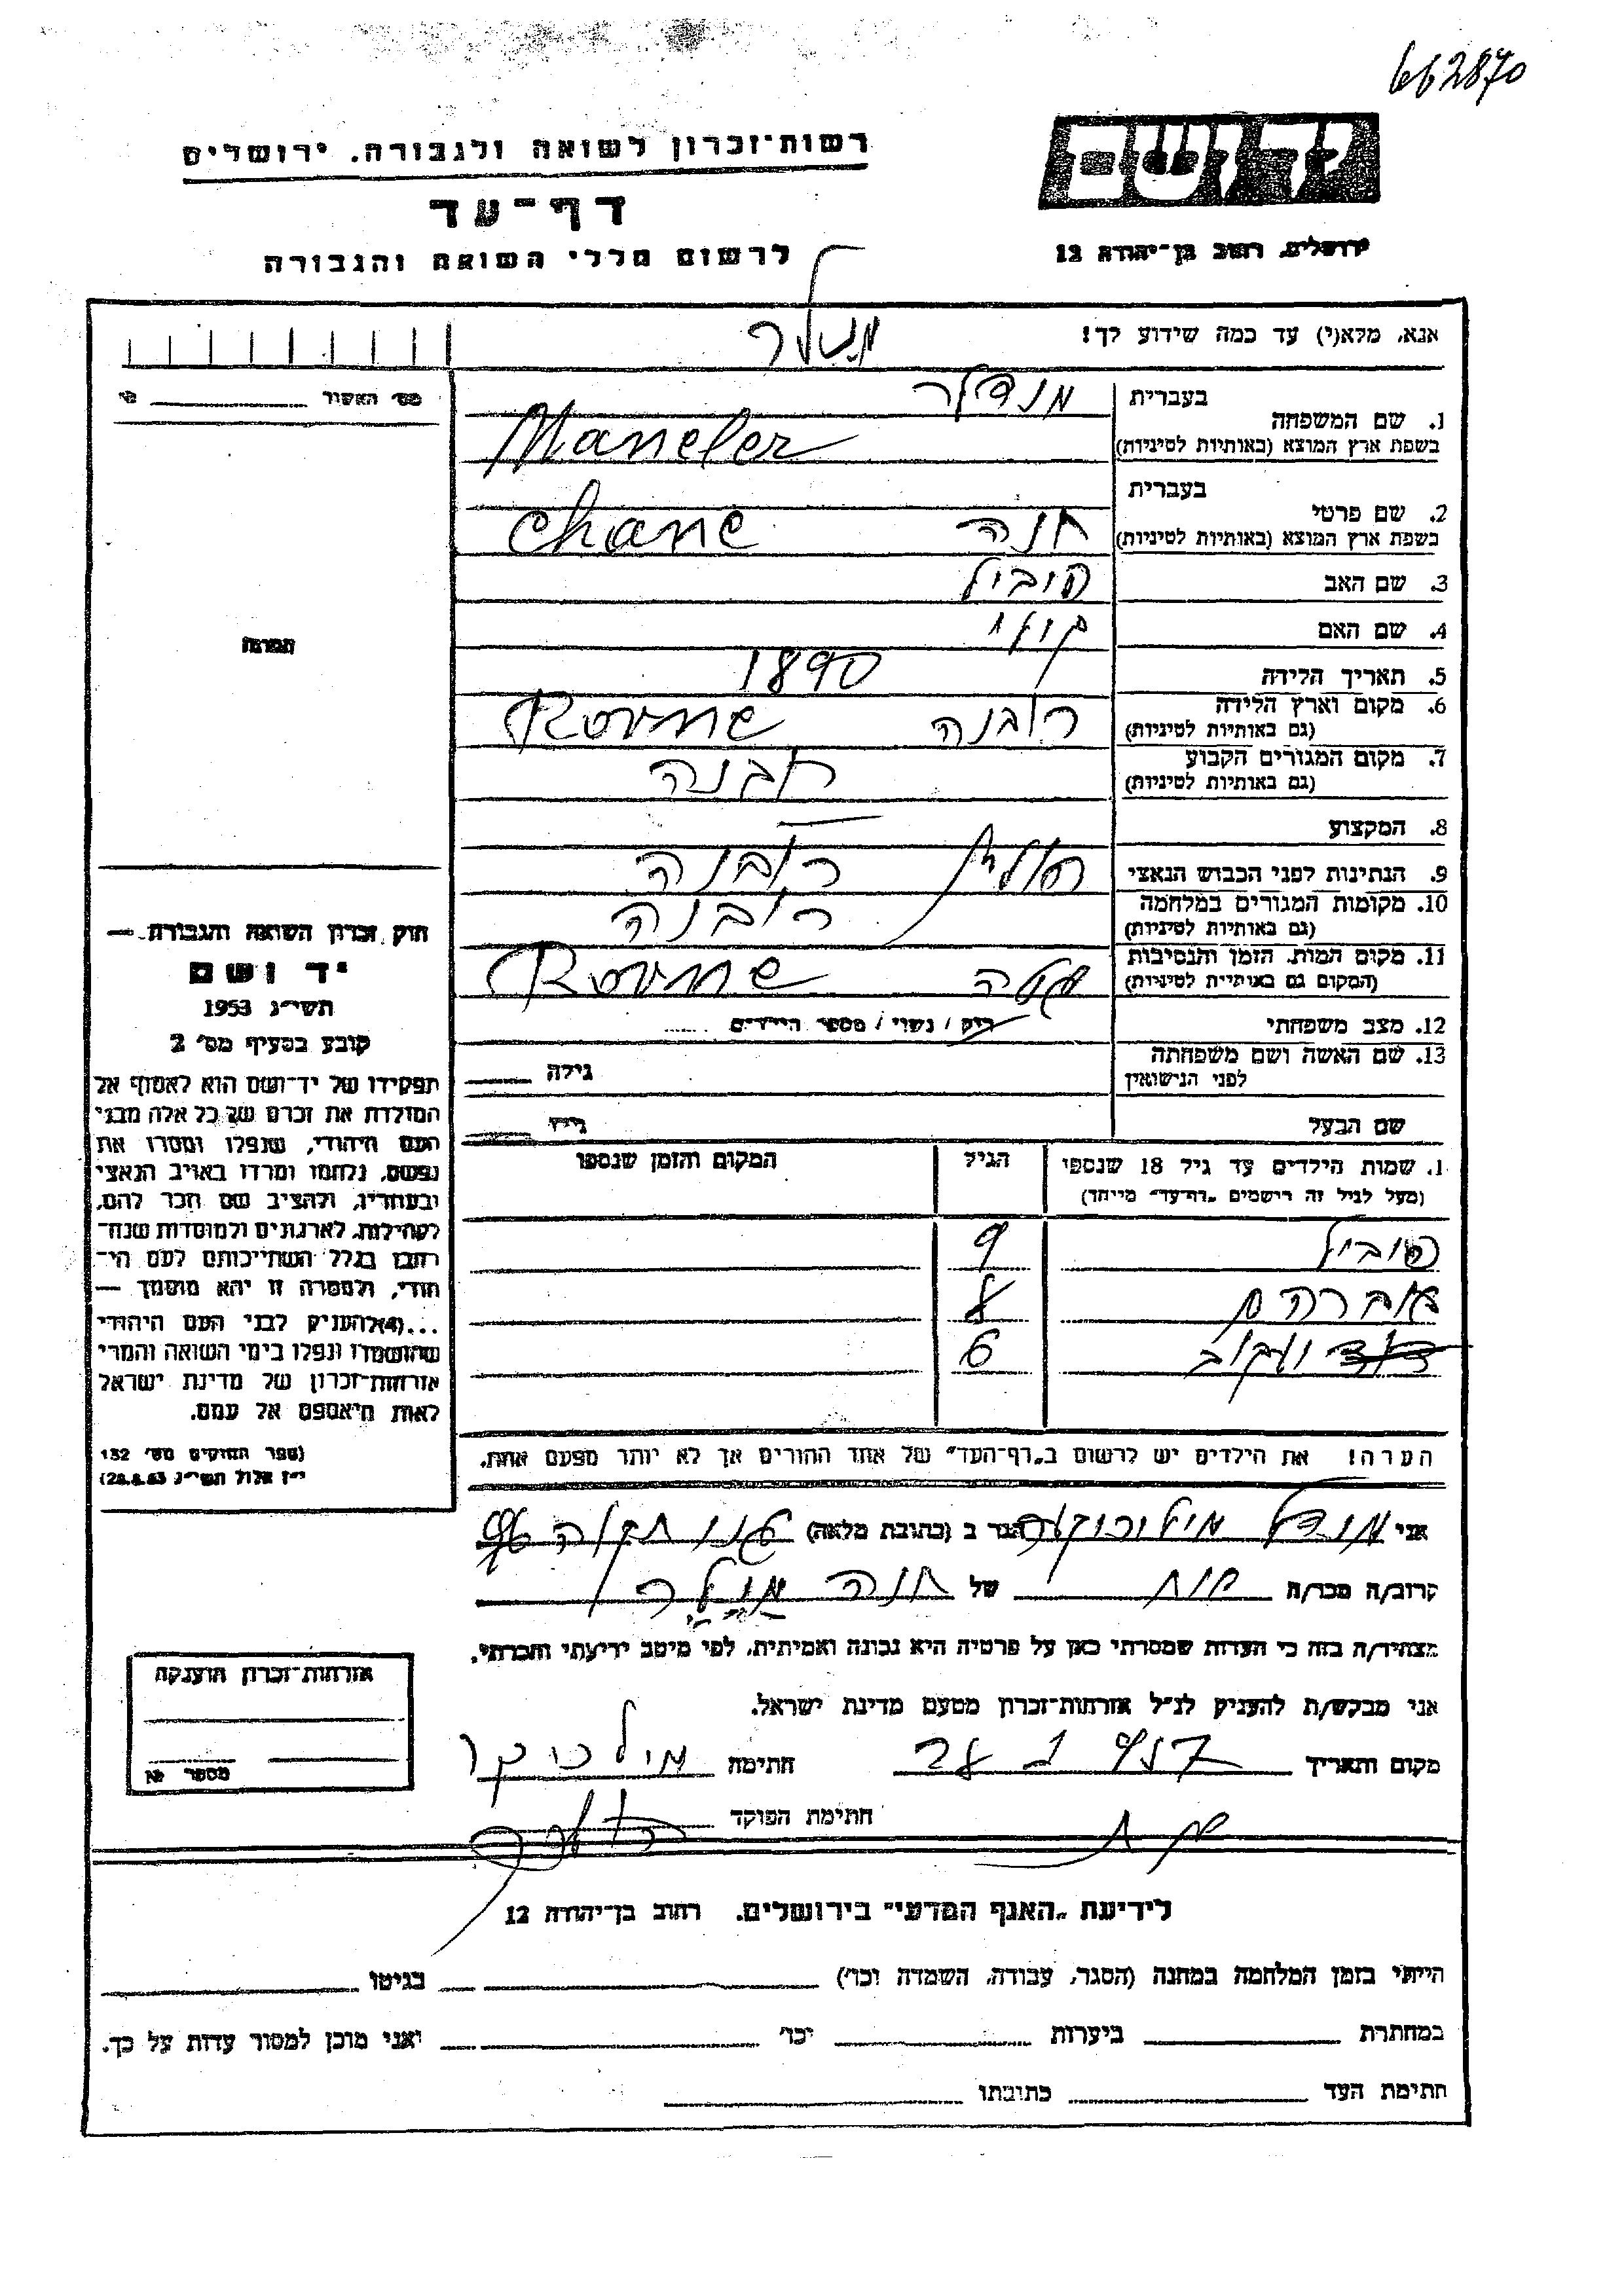 662870
יד ושם
רשות־זכרון לשואה ולגבורה. ירושלים
דף־עד
ירושלים, רחוב בן־יהודה 12
לרשום חללי השואה והגבורה
אנא, מלא(י) עד כמה שידוע לך!
מס' האשור
תמונה
1. שם המשפחה
בעברית מנדלר
בשפת ארץ המוצא (באותיות לטיניות) Mandler
2. שם פרטי
בעברית
בשפת ארץ המוצא (באותיות לטיניות) חנה Chane
3. שם האב טוביל
4. שם האם
5. תאריך הלידה 1890
6. מקום וארץ הלידה רובנה Rovne
(גם באותיות לטיניות)
7. מקום המגורים הקבוע רבנה
(גם באותיות לטיניות)
8. המקצוע —
9. הנתינות לפני הכבוש הנאצי רובנה
10. מקומות המגורים במלחמה רובנה
(גם באותיות לטיניות)
11. מקום המות, הזמן והנסיבות Rovne
(המקום גם באותיות לטיניות)
12. מצב משפחתי רווק / נשוי / מספר הילדים
13. שם האשה ושם משפחתה גילה
לפני הנישואין
שם הבעל גילו
חוק זכרון השואה והגבורה —
יד ושם
תשי"ג 1953
קובע בסעיף מס' 2
תפקידו של יד־ושם הוא לאסוף אל
המולדת את זכרם של כל אלה מבני
העם היהודי, שנפלו ומסרו את
נפשם, נלחמו ומרדו באויב הנאצי
ובעוזריו, ולהציב שם וזכר להם,
לקהילות, לארגונים ולמוסדות שנח־
רבו בגלל השתייכותם לעם הי־
הודי, ולמטרה זו יהא מוסמך —
...(4)להעניק לבני העם היהודי
שהושמדו ונפלו בימי השואה והמרי
אזרחות־זכרון של מדינת ישראל
לאות היאספם אל עמם.
(ספר החוקים מס' 132
י"ז אלול תשי"ג 28.8.53)
1. שמות הילדים עד גיל 18 שנספו הגיל המקום והזמן שנספו
(מעל לגיל זה רישמים "דף־עד" מיוחד)
טוביל 9
אברהם 8
יעקוב 6
הערה! את הילדים יש לרשום ב"דף־העד" של אחד ההורים אך לא יותר מפעם אחת.
אני מנדל הגר ב (כתובת מלאה)
קרוב/ה מכר/ה של חנה
מצהיר/ה בזה כי העדות שמסרתי כאן על פרטיה היא נכונה ואמיתית, לפי מיטב ידיעתי והכרתי.
אני מבקש/ת להעניק לנ"ל אזרחות־זכרון מטעם מדינת ישראל.
מקום ותאריך חתימה
חתימת הפוקד
אזרחות־זכרון הוענקה
מספר
לידיעת "האגף המדעי" בירושלים. רחוב בן־יהודה 12
הייתי בזמן המלחמה במחנה (הסגר, עבודה, השמדה וכו') בגיטו
במחתרת ביערות וכו' ואני מוכן למסור עדות על כך.
חתימת העד כתובתו